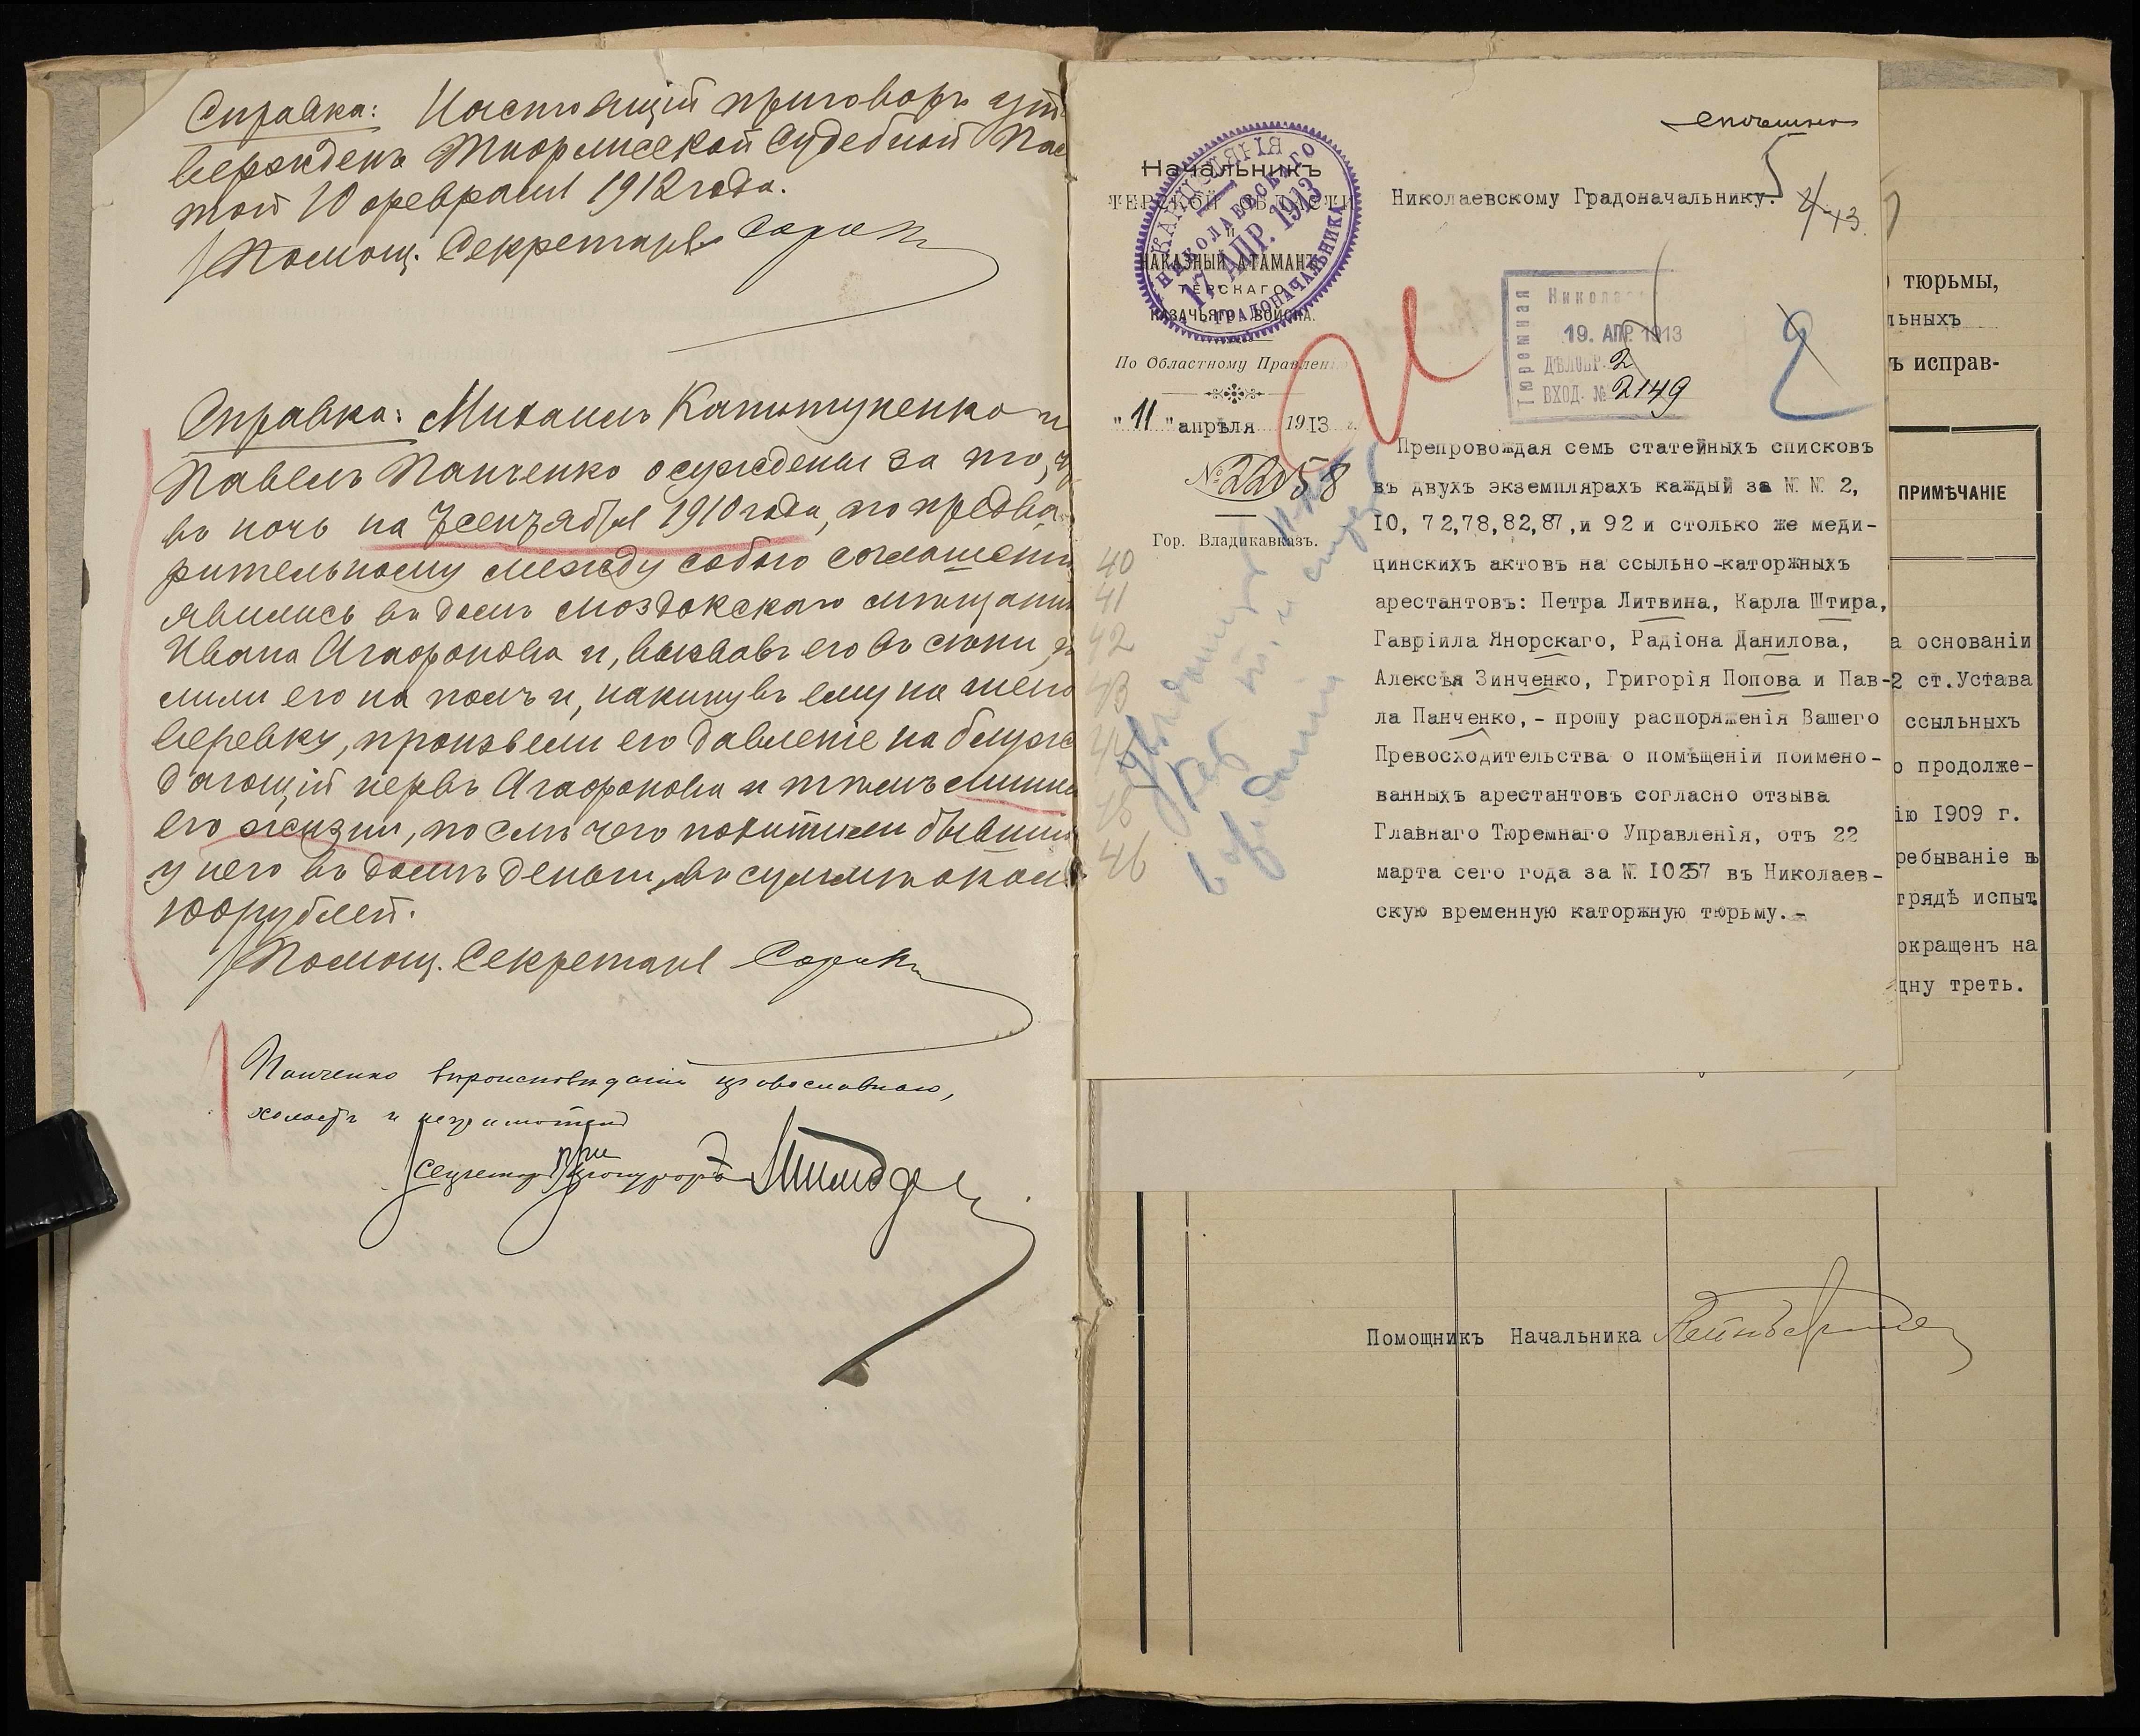 Справка: Настоящій приговоръ ут
вержденъ Тифлисской Судебной Пала
той 10 февраля 1912 года.
Помощ. Секретаря
Справка: Михаилъ Капитуненко и
Павелъ Панченко осуждены за то, ч
въ ночь на 7 сентября 1910 года, по предва
рительному между собою соглашенiю
явились въ домъ моздокскаго мѣщани
Ивана Агафонова и, вызвавъ его въ сѣни,
его на полъ и, накинувъ ему на шею
веревку, произвели его давленіе на блуж
дающій нервъ Агафонова и тѣмъ лиши
его жизни, послѣ чего похитили бывші
у него въ домѣ деньги, въ суммѣ около
100 рублей.
Помощ. Секретаря
Панченко вѣроисповѣданія православнаго,
холостъ и неграмотный
Секретарь при Прокурорѣ
спѣшно
5
Начальникъ
ТЕРСКОЙ ОБЛАСТИ
и
НАКАЗНЫЙ АТАМАНЪ
ТЕРСКАГО
КАЗАЧЬЯГО ВОЙСКА.
КАНЦЕЛЯРІЯ
НИКОЛАЕВСКАГО
17. АПР. 1913
ГРАДОНАЧАЛЬНИКА
По Областному Правленію
"11" апрѣля 1913 г.
№ 22158
Гор. Владикавказъ.
40
41
42
43
44
45
46
Николаевскому Градоначальнику.
Тюремная
Никола
19. АПР. 1913
ДѢЛОПР. 2
ВХОД. № 2149
2
Препровождая семь статейныхъ списковъ
въ двухъ экземплярахъ каждый за №.№. 2,
10, 72,78,82,87,и 92 и столько же меди-
цинскихъ актовъ на ссыльно-каторжныхъ
арестантовъ: Петра Литвина, Карла Штира,
Гавріила Янорскаго, Радіона Данилова,
Алексѣя Зинченко, Григорія Попова и Пав-
ла Панченко,- прошу распоряженія Вашего
Превосходительства о помѣщеніи поимено-
ванныхъ арестантовъ согласно отзыва
Главнаго Тюремнаго Управленія, отъ 22
марта сего года за №. 10257 въ Николаев-
скую временную каторжную тюрьму.-
тюрьмы,
льныхъ
ъ исправ-
ПРИМѢЧАНІЕ
а основаніи
2 ст.Устава
ссыльныхъ
о продолже-
ію 1909 г.
ребываніе въ
трядѣ испыт.
окращенъ на
дну треть.
Помощникъ Начальника